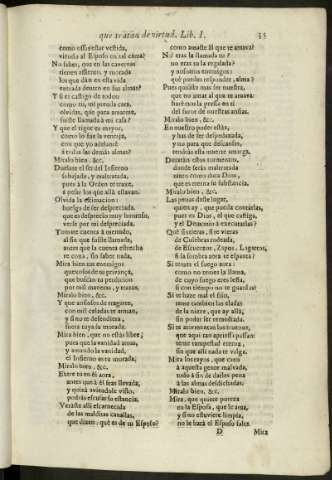 que tratan de virtud. Lib. I. 33
como essa estar vestida,
viendo al Esposo en tal cama?
No sabes, que en las cavernas
tienen assiento, y morada
los que dàn
entrada dentro en sus almas?
Y si el castigo de todos
como tu, mi parada cara,
olvidas, que para amarme,
fueste llamada à mi casa?
Y que el rigor es mayor,
como lo fue la ventaja,
con que yo adelantè
à todas las demàs almas?
Miralo bien, &c.
del Infierno
y maltratada,
pues à la Orden te traxe,
à pesar los que allà estavan.
Olvida la estimacion:
huelga de ser despreciada,
que es desprecio muy honroso,
verse por mi despreciada.
Tomote cuenta à menudo,
al fin que fuiste llamada,
atent que la cuenta estrecha
te corra, sin saber nada.
Mira bien tus enemigos
quexosos de tu privança,
que buscan tu perdicion
por mil maneras, y trazas.
Miralo bien, &c.
Y que ansiosos de tragarte,
con mil celadas te arman,
y sino te defendiera,
fuera tuya la morada.
Mira bien, que no estàs libre;
para que la vanidad amas,
y amando la vanidad,
el Infierno eres morada.
Miralo bien, &c.
Entre tu en èl aora,
antes que à èl seas llevada,
y quizà aviendole visto,
podràs escusar la estancia.
Veràste allà escarnecida
de las malditas canallas,
que diràn, què es de tu Esposo?
como amaste àl que te amava?
No eras la llamada tu?
no eras tu la regalada?
y nosotros enemigos:
què puedes responder, alma?
Pues quisiste mas ser nuestra,
que no amar àl que te amava:
haremos la presa en ti
del furor de nuestras ansias.
Miralo bien, &c.
En nuestro poder estàs,
y has de ser despedazada,
y no para que descanses,
tendràs esta muerte amarga.
Duraràn estos tormentos,
donde seràs maltratada
tanto como dura Dios,
que es eterna su substancia.
Miralo bien, &c.
Las penas deste lugar,
quien ay, que pueda contarlas,
pues es Dios, el que castiga,
y el Demonio à executarlas?
Què sintieras, si te vieras
de Culebras rodeada,
de Escuerzos, Zapos, Lagartos,
si la sombra aora te espanta?
Si temes el fuego aora:
como no temes la llama,
de cuyo fuego eres lesta,
si con tiempo no te guardas?
Si te haze mal el frio,
teme tambien las eladas
de la nieve, que ay allà,
sin poder ser reparadas.
Si te atormentan bastonean,
que aqui tan aprissa passan:
teme tempestad eterna,
sin que alli nadie te valga.
Mira los rayos, que caen
à aquella gente malvada,
todo à fin de darles pena
à las almas desdichadas.
Miralo bien, &c.
Mira, que quiere pureza
en la Esposa, que le ama,
y sino estuviere limpia,
no le harà el Esposo salva
D Mira